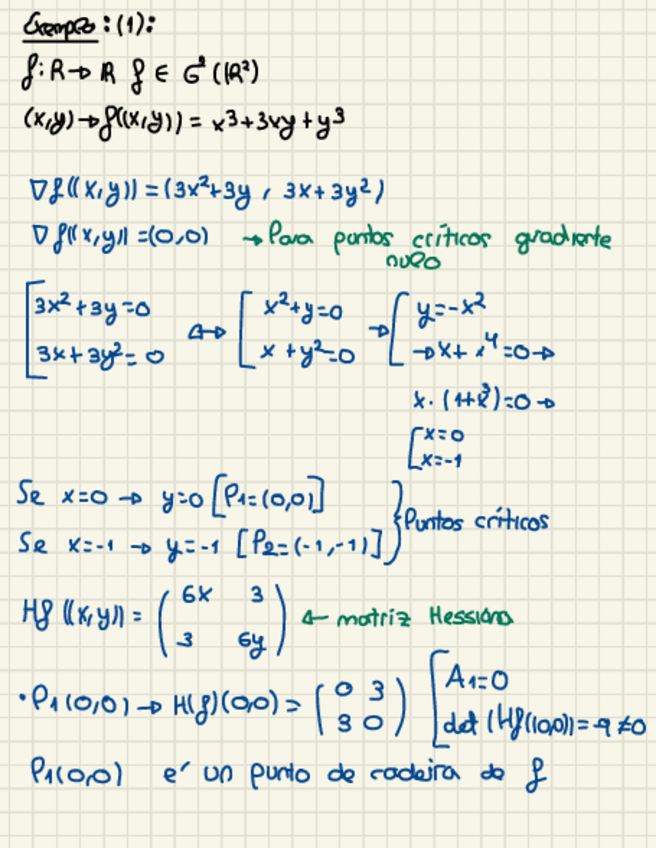 Exemplo: (1):
f: R → R f ∈ G²(R²)
(x,y) → f((x,y)) = x³+3xy+y³
∇f((x,y)) = (3x²+3y, 3x+3y²)
∇f((x,y)) = (0,0) → Para puntos críticos gradiente
nulo
[3x²+3y=0 ⟺ [x²+y=0 → [y=-x²
[3x+3y²=0 [x+y²=0 [→ x+x⁴=0 →
x·(1+x³)=0 →
[x=0
[x=-1
Se x=0 → y=0 [P1=(0,0)]
Se x=-1 → y=-1 [P2=(-1,-1)] } Puntos críticos
Hf((x,y)) = (6x 3 ; 3 6y) ← matriz Hessiana
• P1(0,0) → H(f)(0,0) = (0 3 ; 3 0) [A1=0
[det(Hf((0,0)))=-9≠0
P1(0,0) é un punto de cadeira de f